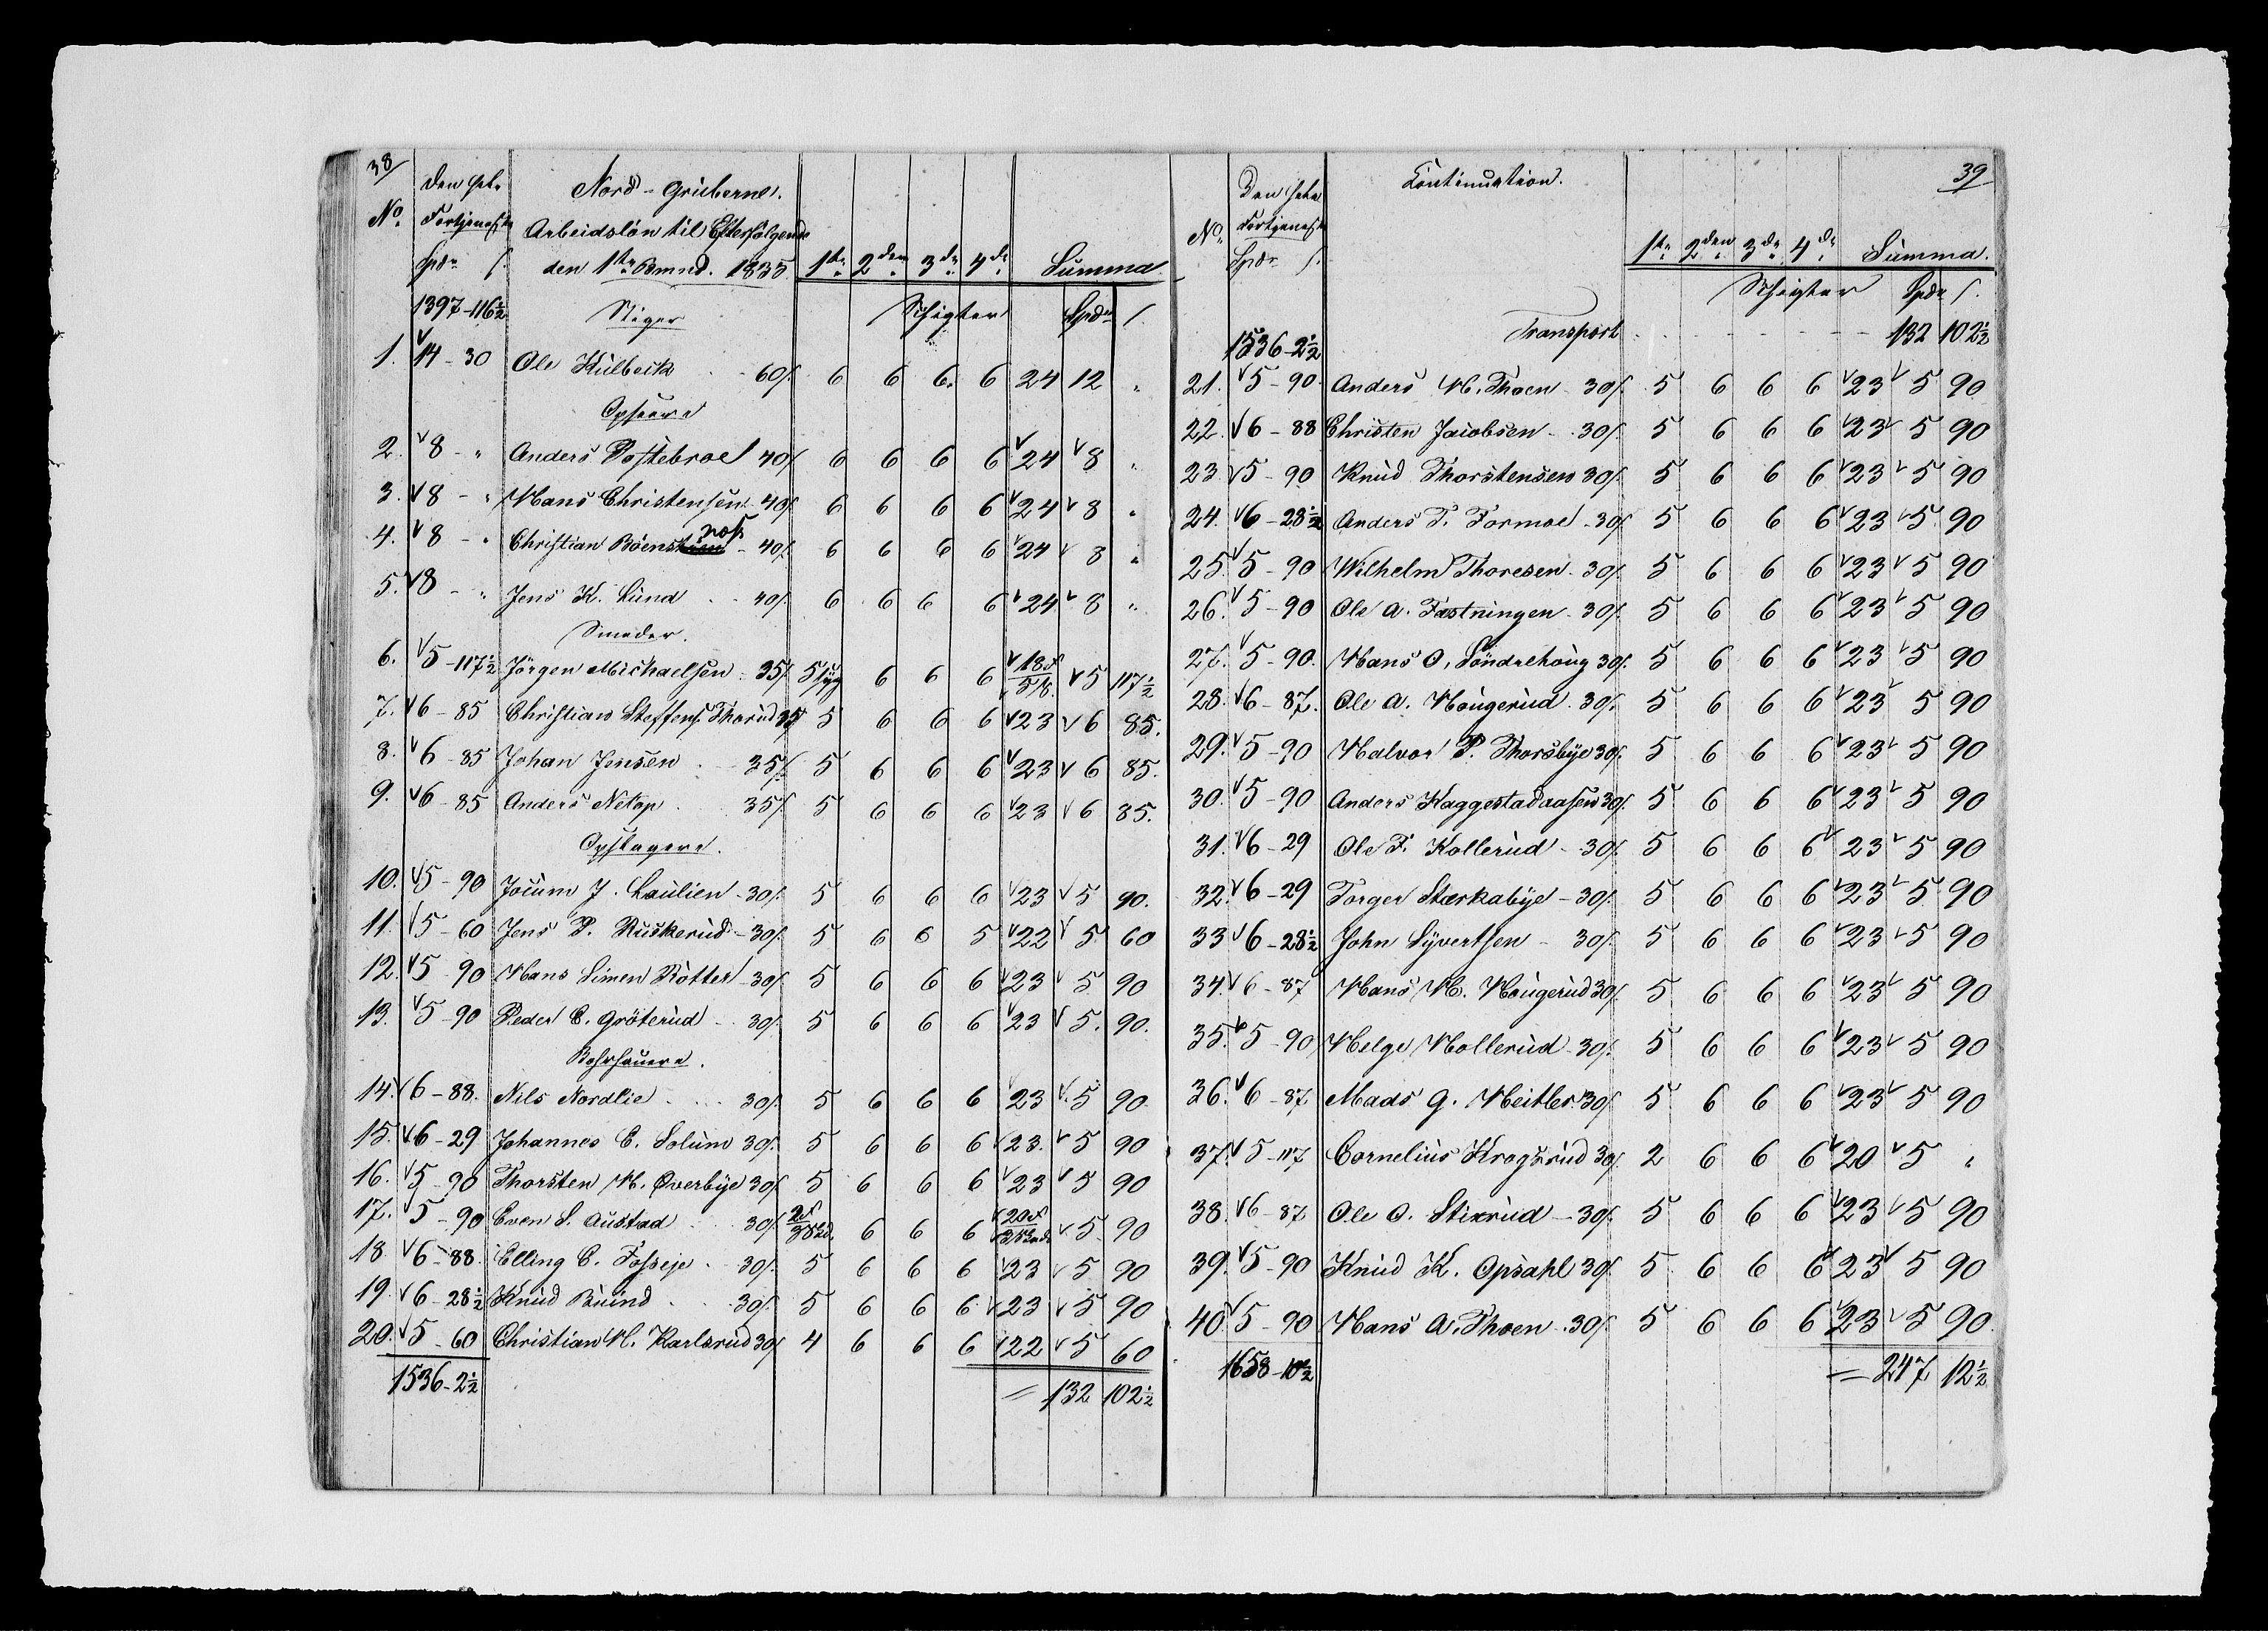 38/
Den hele Nord-Gruberne.
No. Fortjeneste Arbeidslön til Efterfölgende
Spdr ß. den 1ste Bmnd. 1835. 1ste 2den 3die 4de Summa
1397-116½ Stiger Schigter Spdr ß
1. 14-30 Ole Kulbeck 60ß. 6 6 6. 6 24 12 "
Opseere
2. 8 - " Anders Postebroe 40ß 6 6 6 6 24 8 "
3. 8 - " Hans Christensen 40ß 6 6 6 6 24 8 "
4. 8 - " Christian Böens næss - 40ß. 6 6 6 6 24 8 "
5. 8 - " Jens K. Lund 40ß. 6 6 6 6 24 8 "
Smeder.
6. 5-117½ Jörgen Michaelsen 35ß 5 syg 6 6 6 18 5 5 117½
7. 6-85 Christian Steffens. Thorud 35 5 6 6 6 23 6 85.
8. 6-85 Johan Jensen 35ß. 5 6 6 6 23 6 85.
9. 6-85 Anders Netop 35ß 5 6 6 6 23 6 85.
Opslagere.
10. 5-90 Jocum J. Laulien - 30ß. 5 6 6 6 23 5 90.
11. 5-60 Jens P. Ruskerud - 30ß. 5 6 6 5 22 5 60
12. 5-90 Hans Simen Rotter - 30ß 5 6 6 6 23 5 90
13. 5-90 Peder C. Gröterud 30ß. 5 6 6 6 23 5. 90.
Bohrhauere.
14. 6-88. Nils Nordlie 30ß. 5 6 6 6 23 5 90
15. 6-29 Johannes E. Solum 30ß. 5 6 6 6 23. 5 90
16. 5-90 Thorsten H. Overbÿe 30ß 5 6 6 6 23 5 90
17. 5-90 Even S. Austad 30ß 2 3 6 6 6 20 3 5 90
18 6-88. Elling C. Fosseje 30ß. 5 6 6 6 23 5 90
19. 6-28½ Knud Buind 30ß. 5 6 6 6 23 5 90
20. 5-60 Christian H. Karlsrud 30ß 4 6 6 6 22 5 60
1536-2½ = 132 102½
39
Den hele Continuation.
No. Fortjeneste
Spdr ß. 1ste 2den 3die 4de Summa.
Schigter Spdr ß.
1536-2½ Transport 132 102½
21. 5-90 Anders H. Thoen 30ß. 5 6 6 6 23 5 90
22. 6-88 Christen Jacobsen 30ß. 5 6 6 6 23 5 90
23. 5-90 Knud Thorstensen 30ß. 5 6 6 6 23 5 90
24. 6-28½ Anders T. Formoe - 30ß 5 6 6 6 23 5 90
25. 5-90 Wilhelm Thoresen - 30ß. 5 6 6 6 23 5 90
26. 5-90 Ole A. Fæstningen - 30ß. 5 6 6 6 23 5 90
27. 5-90. Hans O. Söndrehoug 30ß. 5 6 6 6 23 5 90
28. 6-87. Ole A. Hougerud 30ß. 5 6 6 6 23 5 90
29. 5-90 Halvor P. Thorsbÿe 30ß. 5 6 6 6 23 5 90
30. 5-90 Anders Kaggestadaasen 30ß. 5 6 6 6 23 5 90
31. 6-29 Ole F. Kollerud - 30ß. 5 6 6 6 23 5 90
32. 6-29 Torger Stærkabÿe - 30ß. 5 6 6 6 23 5 90
33 6-28½ John Sÿvertsen - 30ß. 5 6 6 6 23 5 90
34. 6-87 Hans H. Hougerud 30ß. 5 6 6 6 23 5 90
35. 5-90 Helge Hollerud - 30ß. 5 6 6 6 23 5 90
36. 6-87. Mads G. Heitler. 30ß 5 6 6 6 23 5 90
37. 5-117 Cornelius Krogsrud 30ß. 2 6 6 6 20 5 "
38. 6-87 Ole O. Stixrud - 30ß. 5 6 6 6 23 5 90
39. 5-90 Knud K. Opsahl 30ß. 5 6 6 6 23 5 90
40. 5-90 Hans A. Thoen. 30ß. 5 6 6 6 23 5 90.
1658-10½ = 247 12½